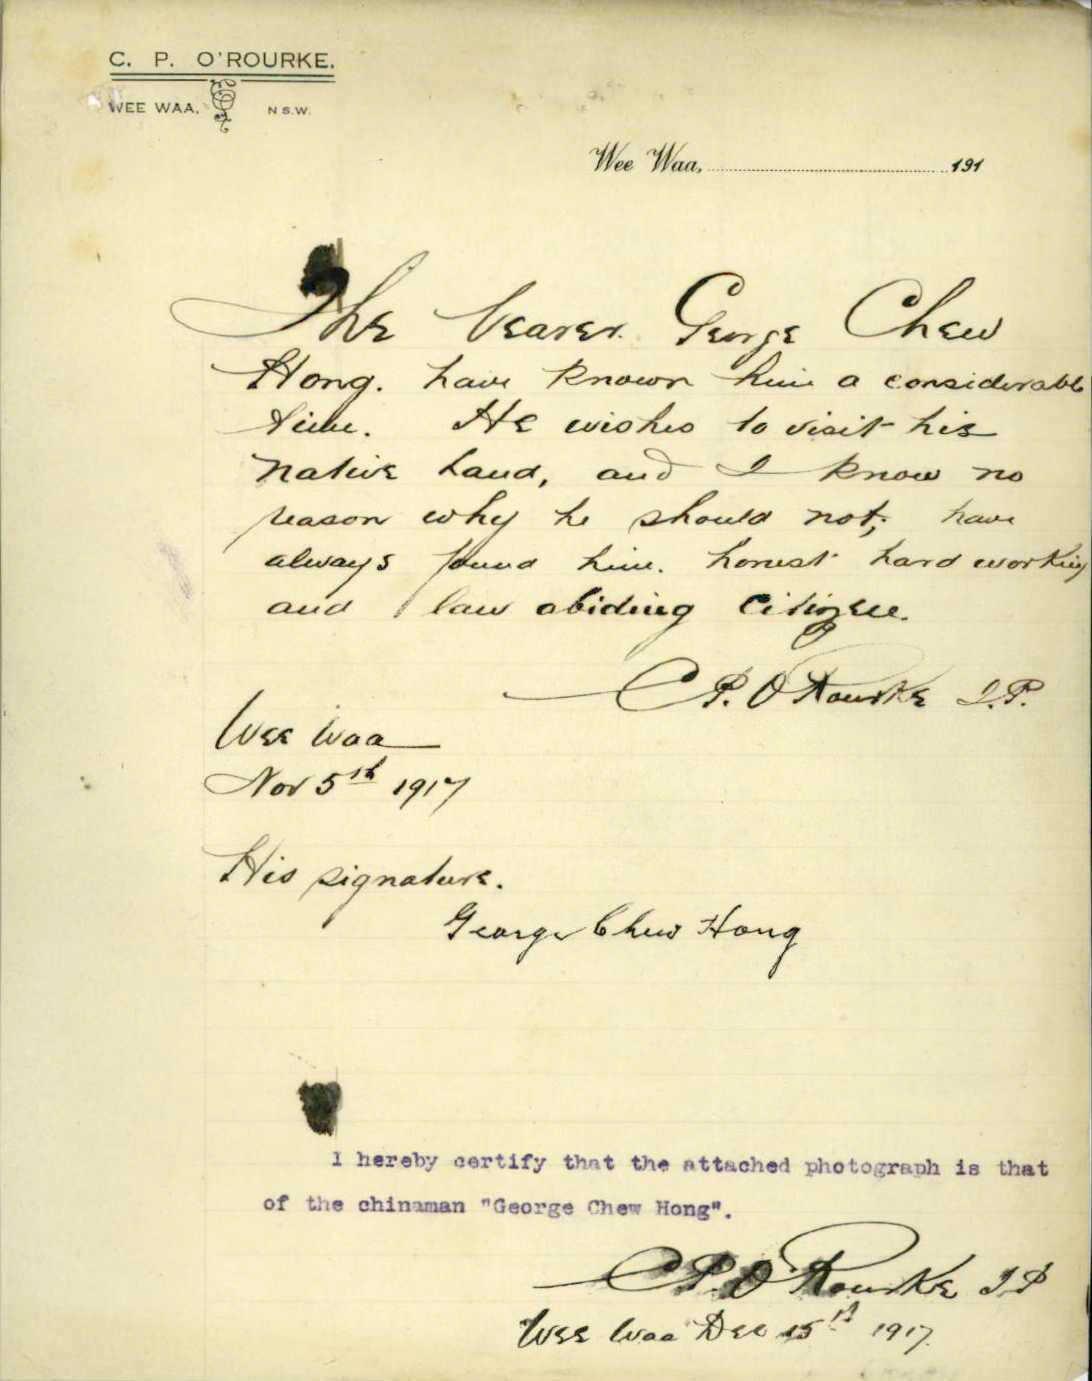 C. P. O'ROURKE.
WEE WAA. N S.W.
Wee Waa, 191
The bearer George Chew
Hong. have known him a considerable
time. He wishes to visit his
native land, and I know no
reason why he should not; have
always found him. honest hard working
and law abiding citizen.
CP. O'Rourke J.P.
Wee Waa
Nov 5th 1917
His signature.
George Chew Hong
I hereby certify that the attached photograph is that
of the chinaman "George Chew Hong".
CP. O'Rourke J.P
Wee Waa Dec 15th 1917.